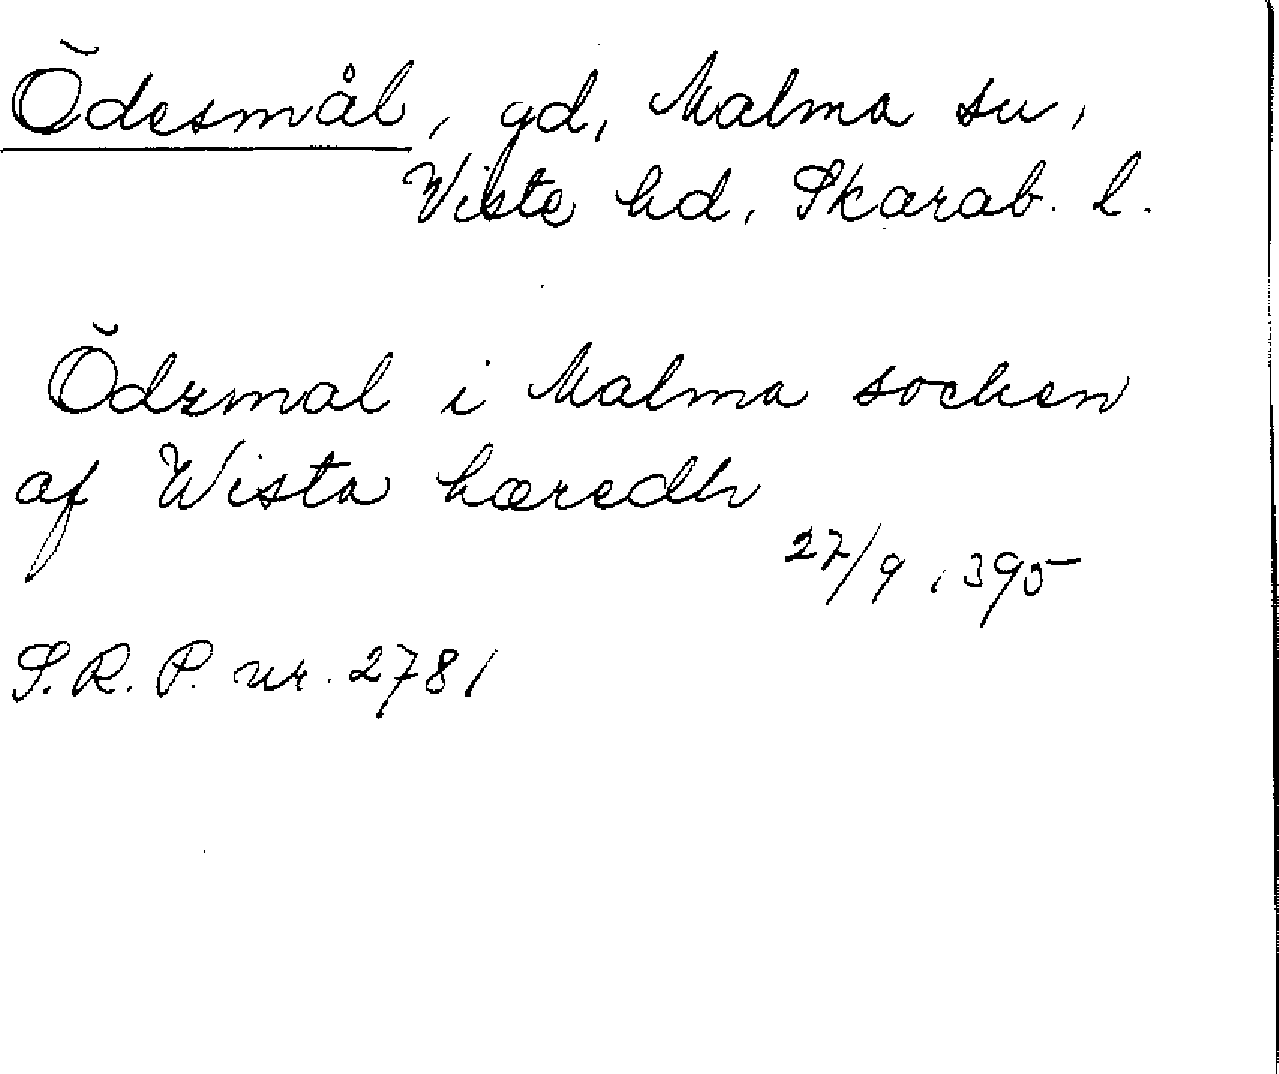 Ödesmål, gd, Malma sn,
Viste hd, Skarab. l.
Ödzmal i Malma socken
af Wista hæredh
27/9 1395
S.R.P. nr. 2781